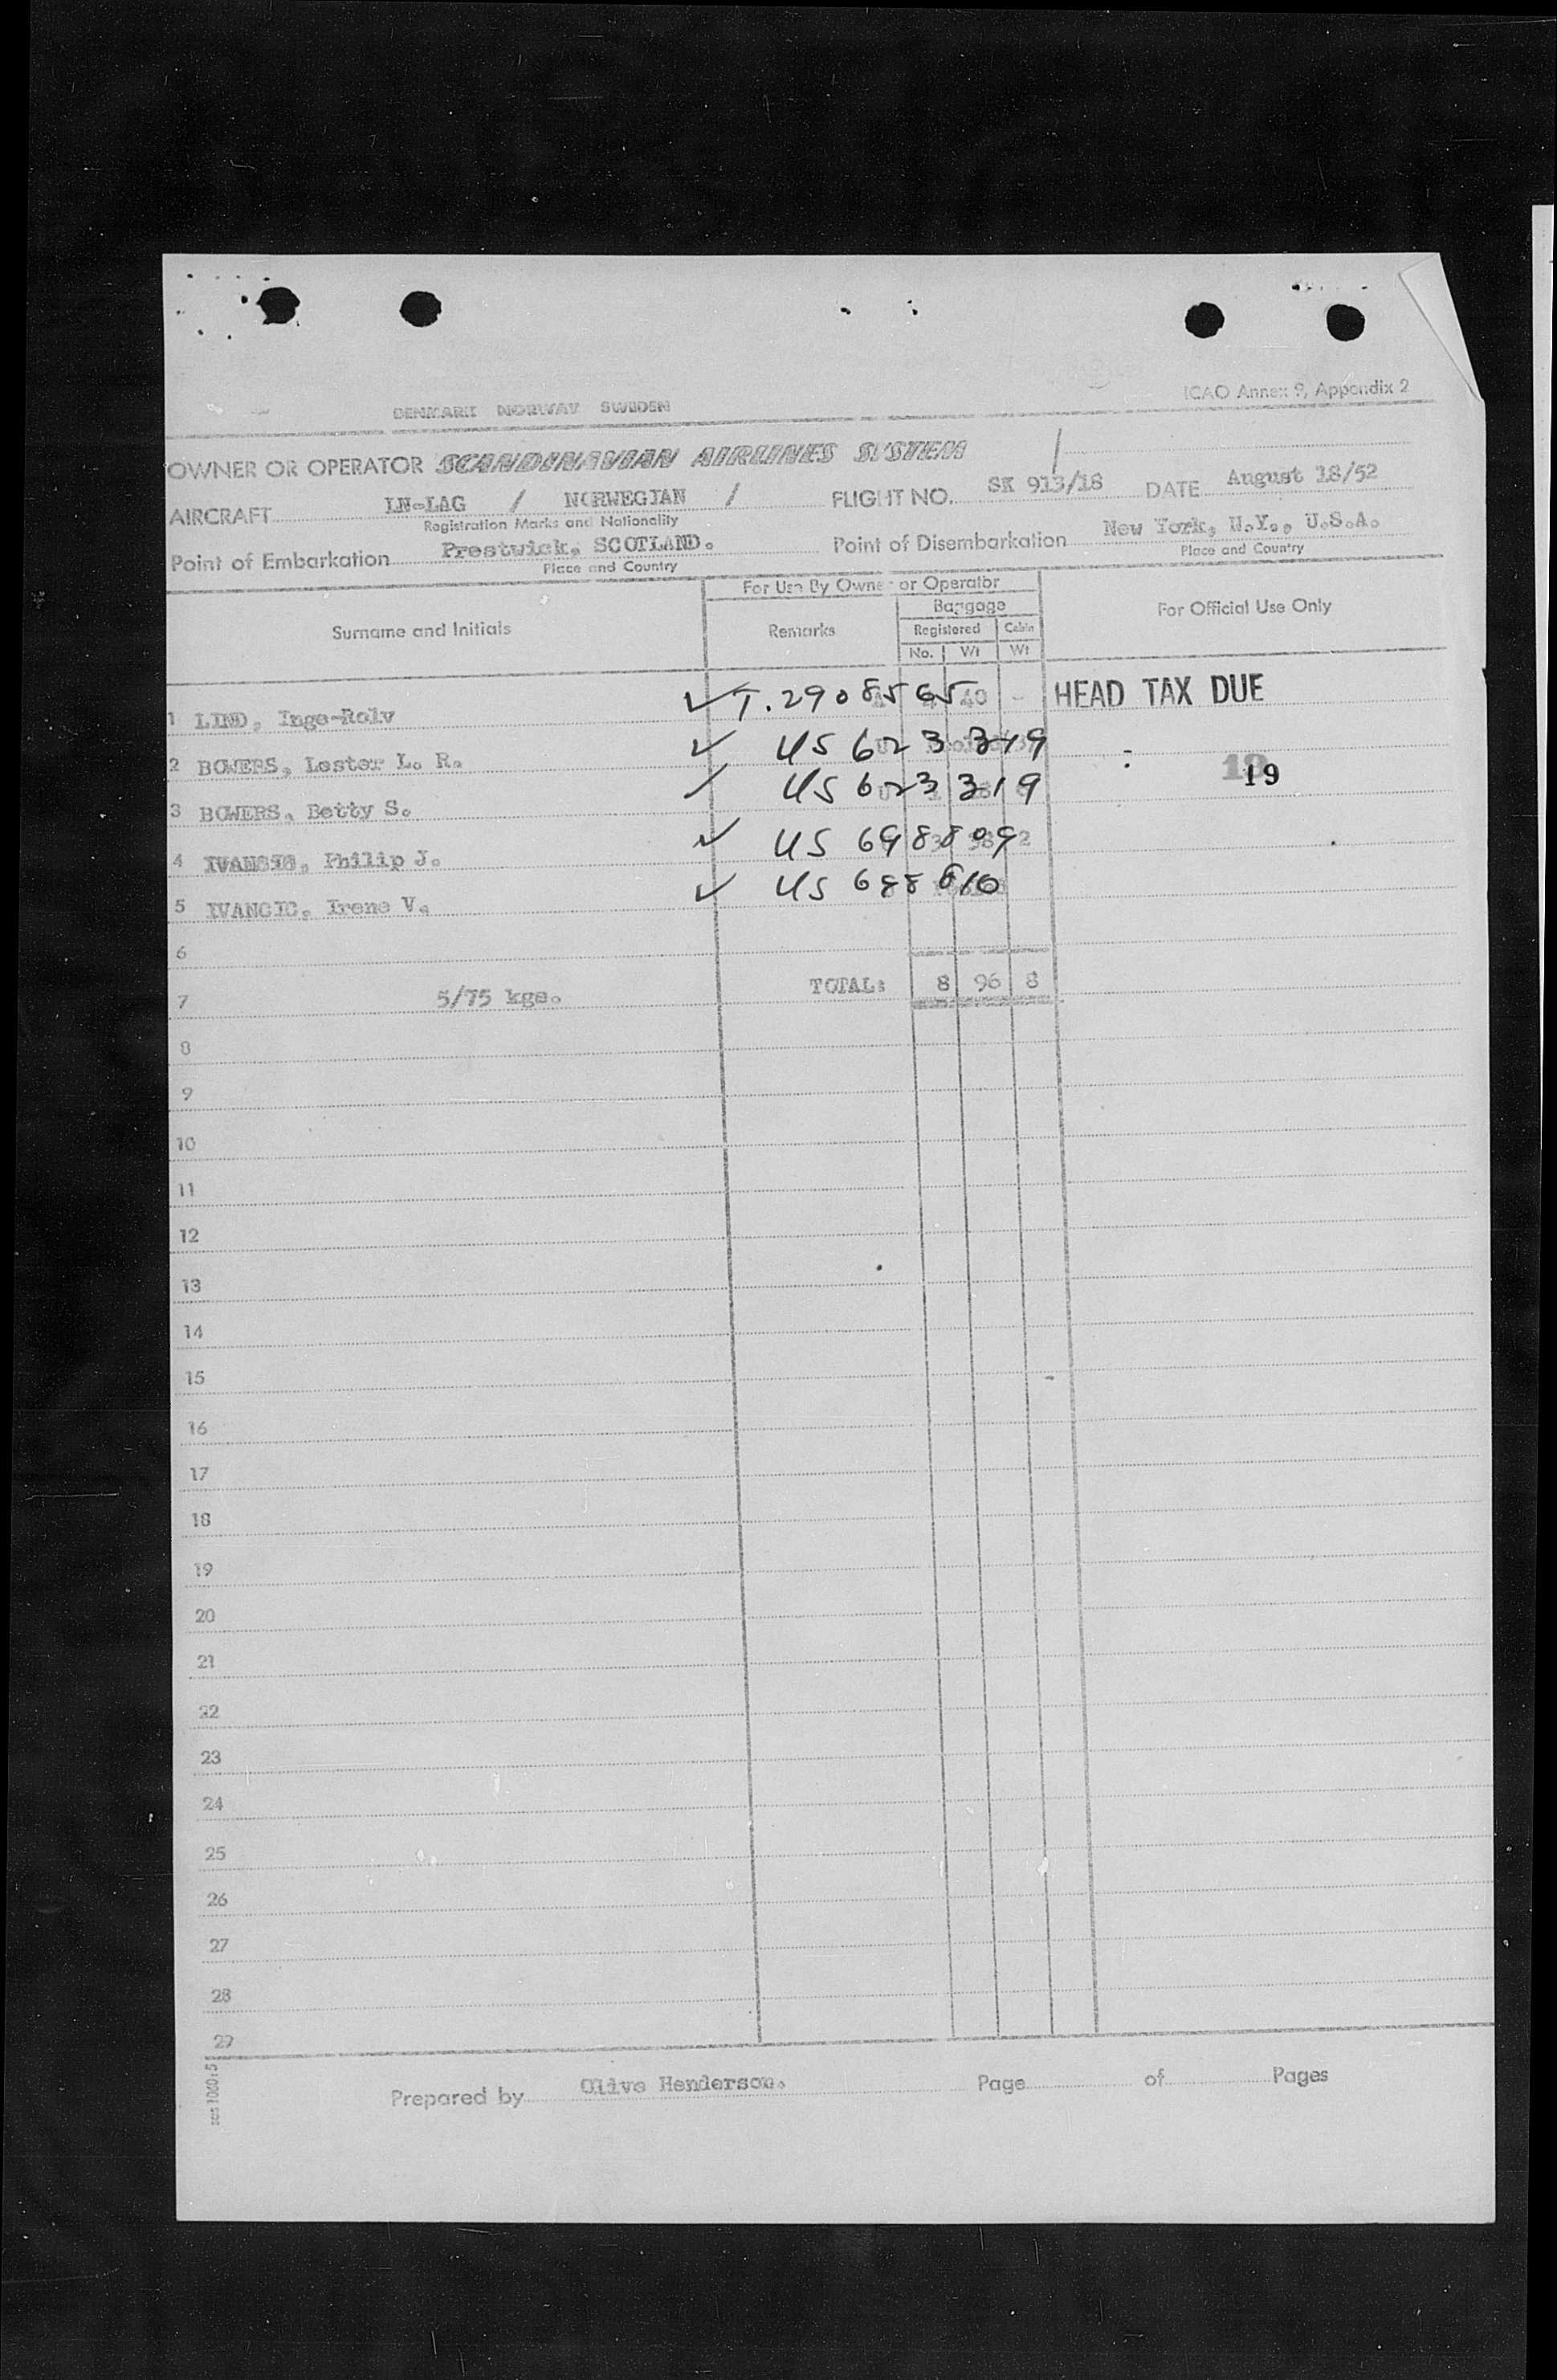 ICAO Annex 9, Appendix 2
DENMARK NORWAY SWEDEN
OWNER OR OPERATOR SCANDINAVIAN AIRLINES SYSTEM
AIRCRAFT LN-LAG / NORWEGIAN / FLIGHT NO. SK 913/18 DATE August 18/52
Registration Marks and Nationality
Point of Embarkation Prestwick, SCOTLAND. Point of Disembarkation New York, N.Y., U.S.A.
Place and Country Place and Country
For Use By Owner or Operator
Surname and Initials Remarks Baggage For Official Use Only
Registered Cabin
No. Wt Wt
1 LIND, Inge-Rolv ✓ T. 2908565 40 - HEAD TAX DUE
2 BOWERS, Lester L. R. ✓ US 623319
3 BOWERS, Betty S. ✓ US 623319 19
4 IVANCIC, Philip J. ✓ US 698809
5 IVANCIC, Irene V. ✓ US 688810
6
7 5/75 kgs. TOTAL: 8 96 8
8
9
10
11
12
13
14
15
16
17
18
19
20
21
22
23
24
25
26
27
28
29
Prepared by Olive Henderson. Page of Pages